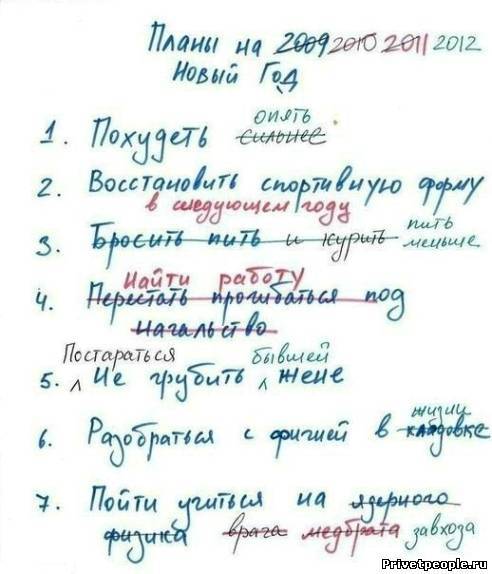 Планы на 2009 2010 2011 2012
Новый Год
опять
1. Похудеть сильнее
2. Восстановить спортивную форму
в следующем году
пить
3. Бросить пить и курить меньше
Найти работу
4. Перестать прогибаться под
начальство
Постараться бывшей
5. Не грубить жене
жизни
6. Разобраться с фигнёй в кладовке
7. Пойти учиться на ядерного
физика врача медбрата завхоза
Privetpeople.ru